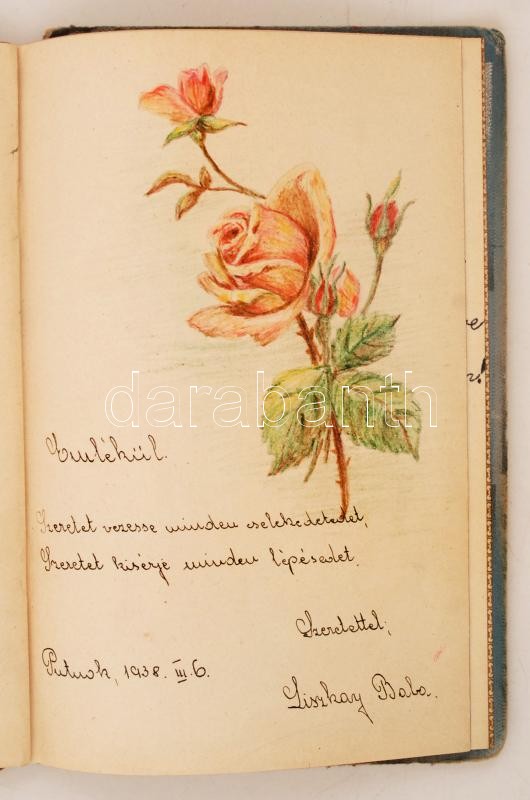 e
z!
darabanth
Emlékül.
Szeretet vezesse minden cselekedetedet,
Szeretet kisérje minden lépésedet.
Szeretettel;
Putnok, 1938. III. 6.
Liszkay Baba.